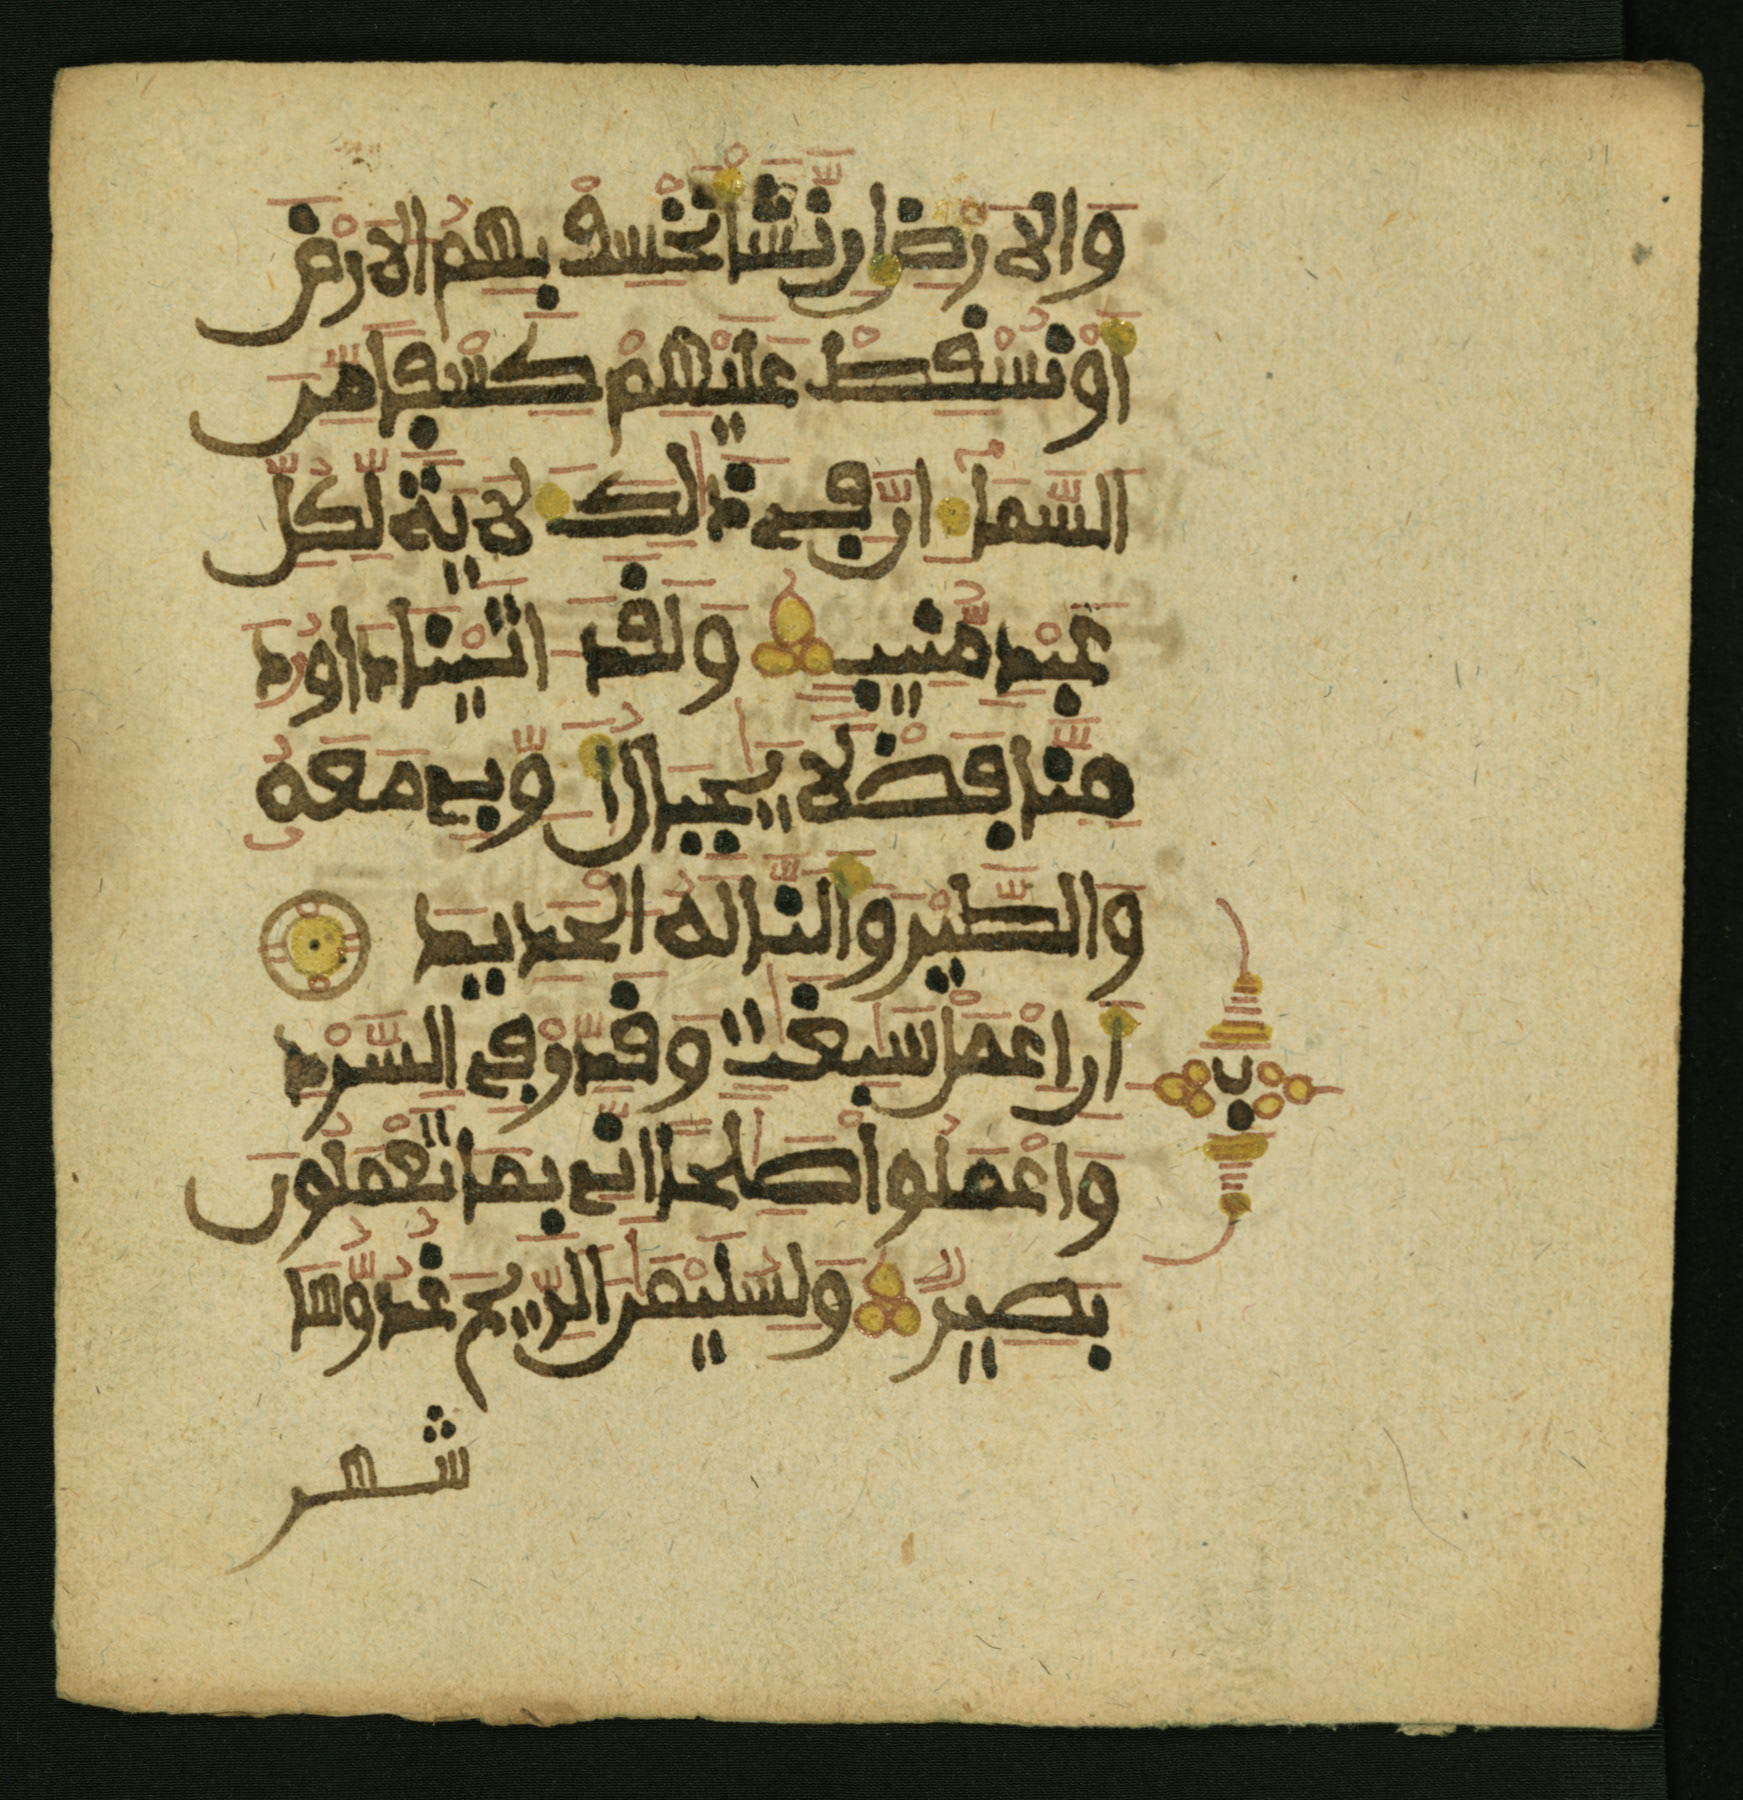 وَالَارْضِ إِن نَّشَأْ نَخْسِفْ بِهِمُ الَارْضَ
أَوْ نُسْقِطْ عَلَيْهِمْ كِسْفًا مِّنَ
السَّمَآءِ انَّ فِي ذَٰلِكَ لَأَيَةً لِّكُلِّ
عَبْدٍ مُّنِيبٍ وَلَقَدَ اتَيْنَا دَاوُۥدَ
مِنَّا فَضْلًا يَٰجِبَالُ أَوِّبِي مَعَهُۥ
وَالطَّيْرَ وَأَلَنَّا لَهُ الْحَدِيدَ
أَنِ اعْمَلْ سَٰبِغَٰتٍ وَقَدِّرْ فِي السَّرْدِ
وَاعْمَلُواْ صَٰلِحًا انِّي بِمَا تَعْمَلُونَ
ب
بَصِيرٌ وَلِسُلَيْمَٰنَ الرِّيحَ غُدُوُّهَا
شهر